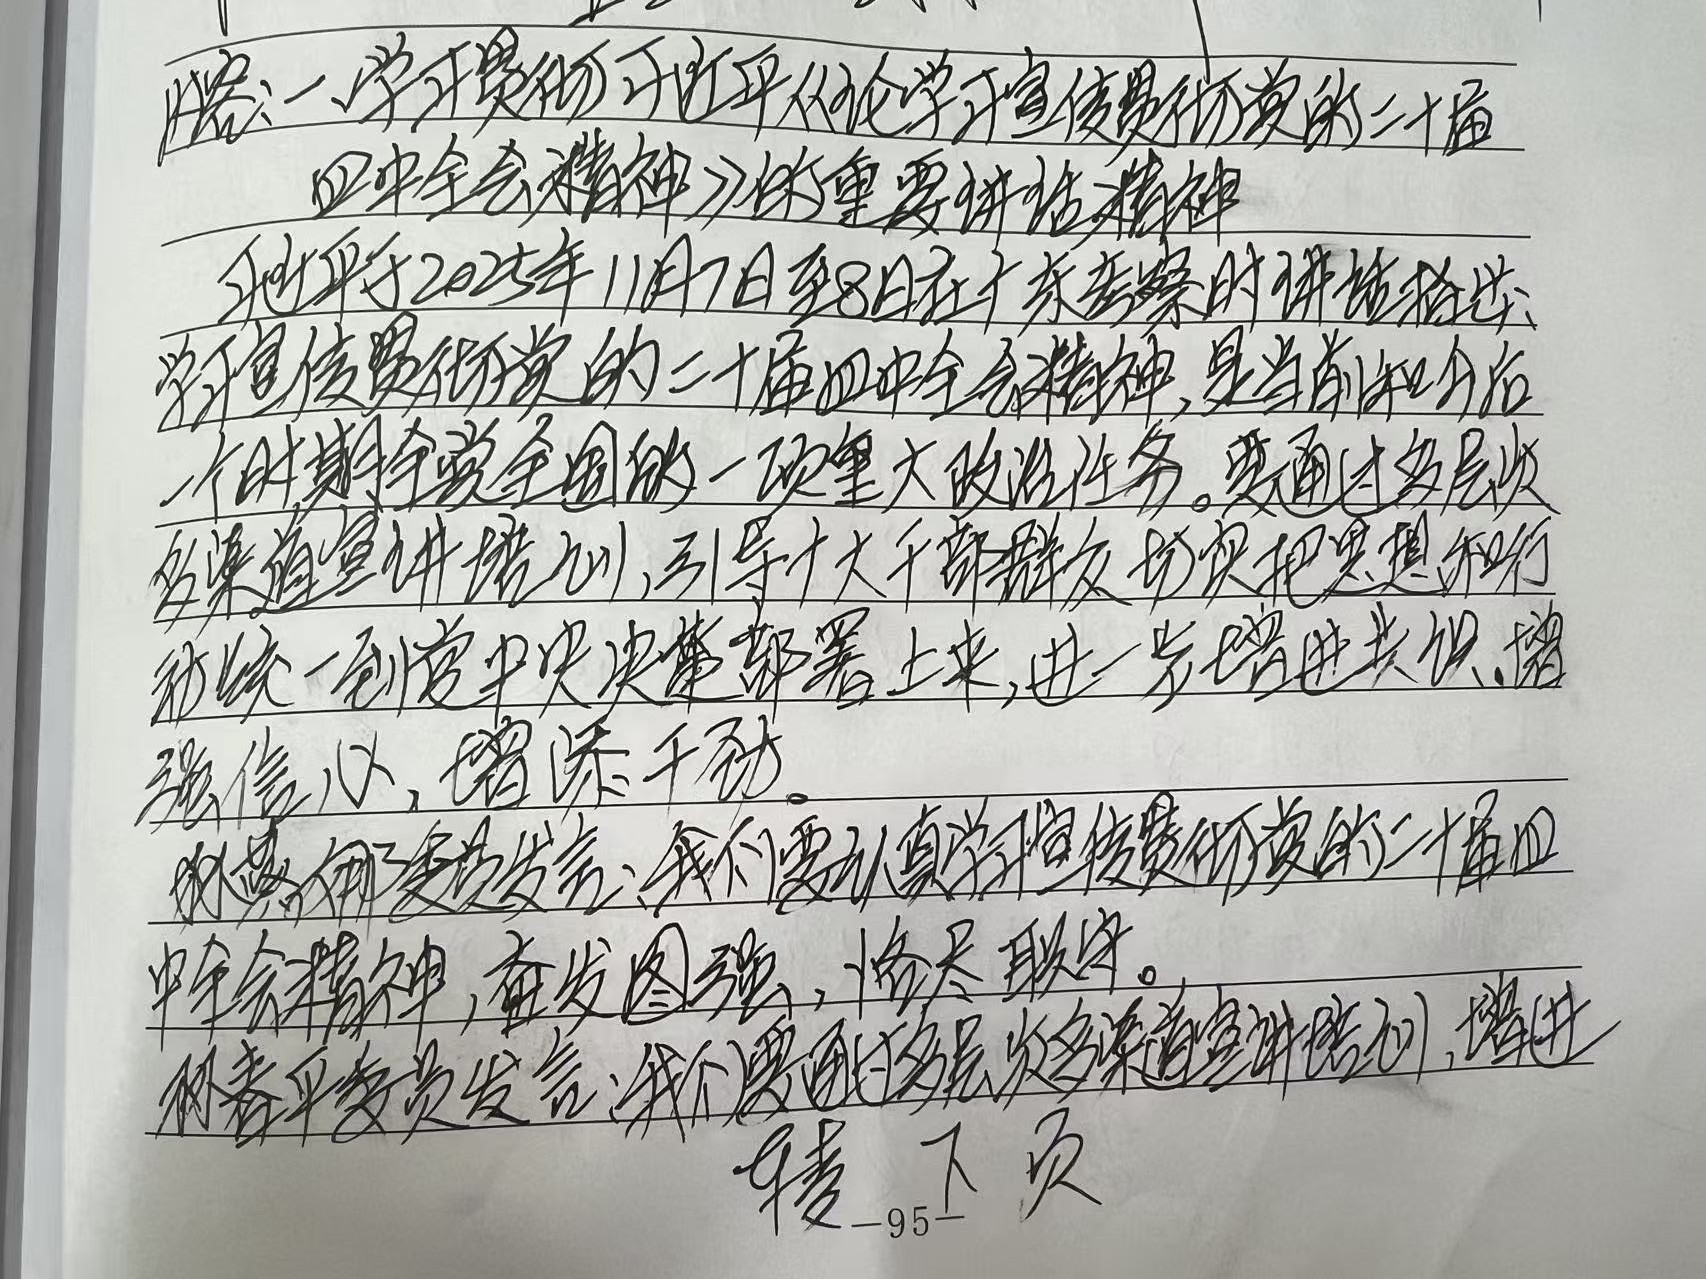 内容:一、学习贯彻习近平《论学习宣传贯彻党的二十届
四中全会精神》的重要讲话精神
习近平于2025年11月7日至8日在广东考察时讲话指出:
学习宣传贯彻党的二十届四中全会精神,是当前和今后
一个时期全党全国的一项重大政治任务。要通过多层次
多渠道宣讲培训,引导广大干部群众切实把思想和行
动统一到党中央决策部署上来,进一步增进共识、增
强信心、增添干劲。
委员发言:我们要认真学习宣传贯彻党的二十届四
中全会精神,奋发图强,恪尽职守。
春平委员发言:我们要通过多层次多渠道宣讲培训,增进
转下页
—95—